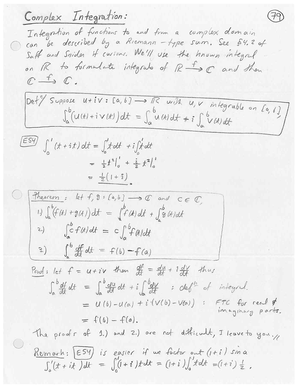 Complex Integration: 79
Integration of functions to and from a complex domain
can be described by a Riemann-type sum. See §4.2 of
Saff and Snider if curious. We'll use the known integral
on ℝ to formulate integrals of ℝ →f ℂ and then
ℂ →f ℂ.
Defⁿ/ Suppose u+iv : [a,b] → ℂ with u, v integrable on [a,b]
∫_a^b (u(t)+iv(t))dt = ∫_a^b u(t)dt + i∫_a^b v(t)dt
E54 ∫_0^1 (t+it)dt = ∫_0^1 t dt + i∫_0^1 t dt
= ½t²|_0^1 + i½t²|_0^1
= ½(1+i).
Theorem: let f, g : [a,b] → ℂ and c ∈ ℂ,
1) ∫_a^b (f(t)+g(t))dt = ∫_a^b f(t)dt + ∫_a^b g(t)dt
2.) ∫_a^b cf(t)dt = c∫_a^b f(t)dt
3.) ∫_a^b df/dt dt = f(b) - f(a)
Proof: let f = u+iv then df/dt = du/dt + i dv/dt thus
∫_a^b df/dt dt = ∫_a^b du/dt dt + i∫_a^b dv/dt dt : defⁿ of integral
= u(b)-u(a) + i(v(b)-v(a)) : FTC for real & imaginary parts.
= f(b) - f(a).
The proofs of 1.) and 2.) are not difficult, I leave to you.//
Remark: E54 is easier if we factor out (1+i) since
∫_0^1 (t+it)dt = ∫_0^1 (1+i)t dt = (1+i)∫_0^1 t dt = (1+i)½.